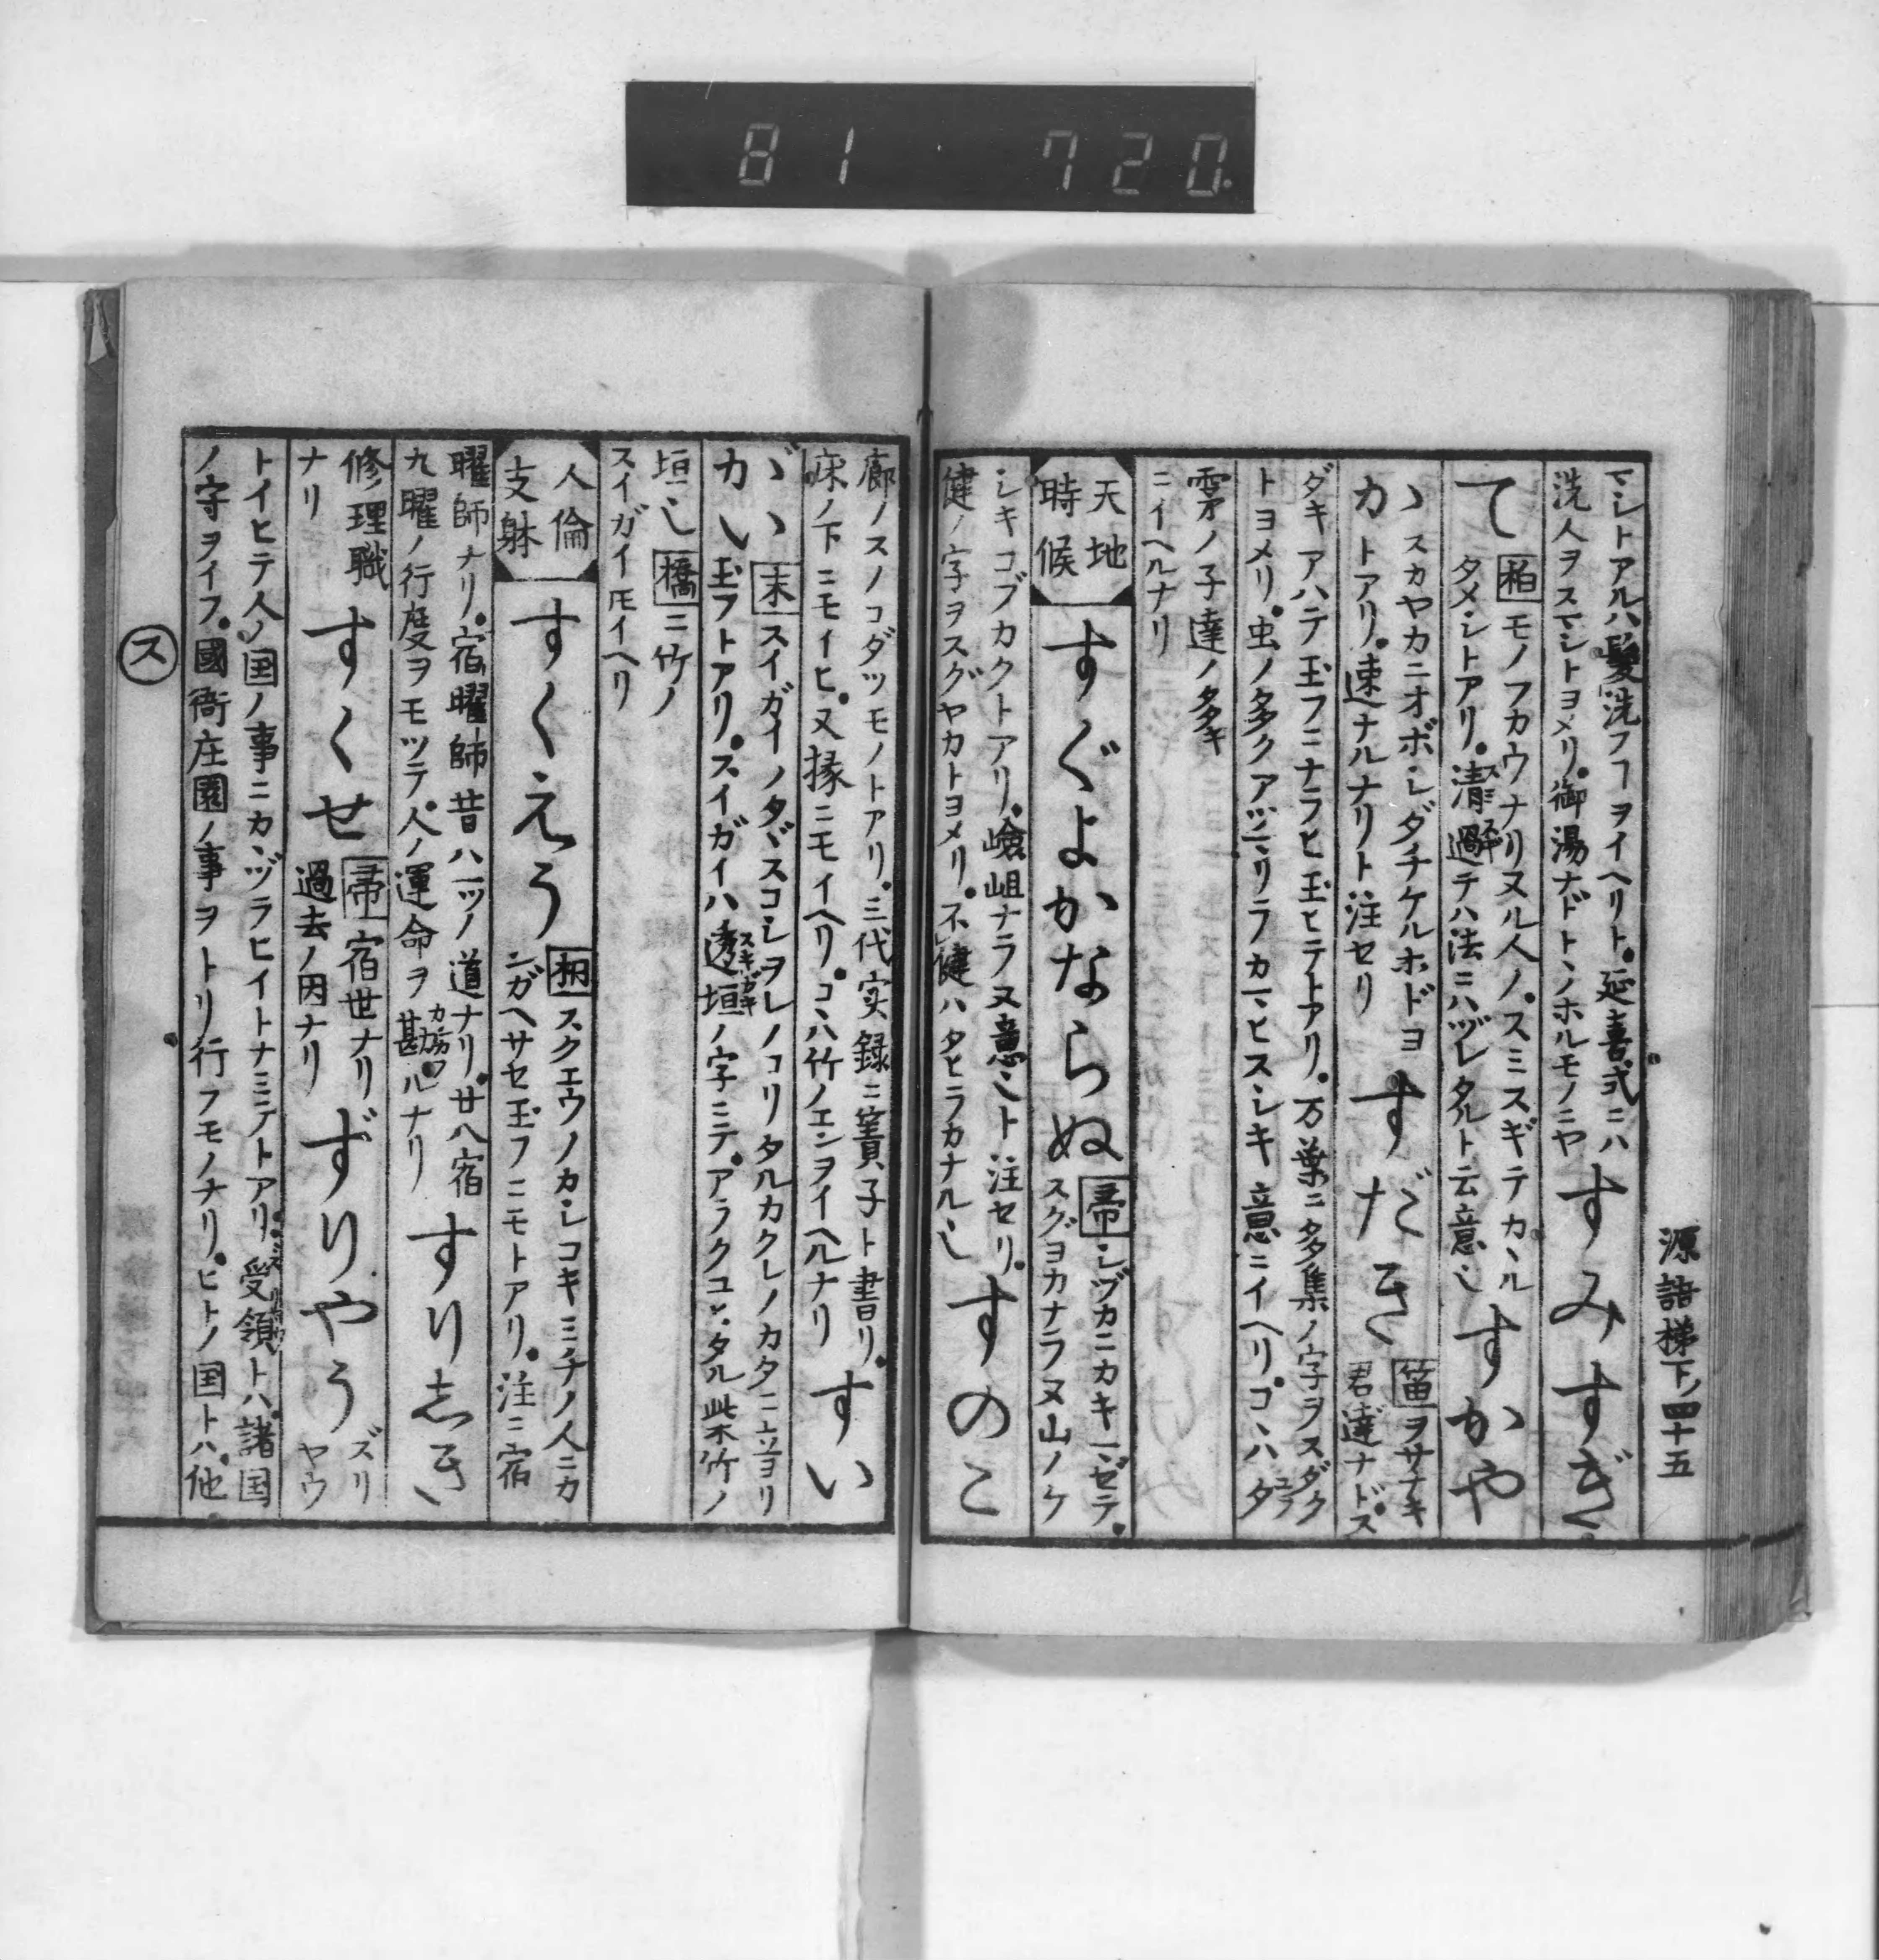 81 720
源語梯下ノ四十五
マシトアルハ髪洗フコヲイヘリト。延喜式ニハ
洗人ヲスマシトヨメリ。御湯ナドトヽノホルモノニヤ
すみすぎ
て
柏 モノフカウナリヌル人ノ。スミスギテカヽル
タメシトアリ。清過テハ法ニハヅレタルト云意也
すかや
か
ヽスカヤカニオボシダチケルホドヨ
トアリ。速ナルナリト注セリ
すだき
笛 ヲサナキ
君達ナド。ス
ダキアハテ玉フニナラヒ玉ヒテトアリ。万葉ニ多集ノ字ヲスダク
トヨメリ。虫ノ多クアツマリラカマヒスシキ意ニイヘリ。コヽハタ
雲ノ子達ノ多キ
ニイヘルナリ
天地
時候
すぐよかならぬ
帚 シヅカニカキマゼテ。
スグヨカナラヌ山ノケ
シキコブカクトアリ。嶮岨ナラヌ意也ト注セリ。
健ノ字ヲスグヤカトヨメリ。不健ハタヒラカナル也
すのこ
廊ノスノコダツモノトアリ。三代実録ニ簀子ト書リ。
床ノ下ニモイヒ。又掾ニモイヘリ。コヽハ竹ノエンヲイヘルナリ
すい
がい
かい
末 スイガイノタヾスコシヲレノコリタルカクレノカタニ立ヨリ
玉フトアリ。スイガイハ透垣ノ字ニテ。アラクユヒタル柴竹ノ
スキガキ
垣也 橋 ニ竹ノ
スイガイ𪜈イヘリ
人倫
支躰
すくえう
桐 スクエウノカシコキミチノ人ニカ
ンガヘサセ玉フニモトアリ。注ニ宿
曜師ナリ。宿曜師昔ハ一ツノ道ナリ。廿八宿
九曜ノ行度ヲモツテ。人ノ運命ヲ勘ルナリ
すりしき
修理職
ナリ
すくせ
帚 宿世ナリ
過去ノ因ナリ
ずりやう
ズリ
ヤウ
トイヒテ人ノ国ノ事ニカヽヅラヒイトナミテトアリ。受領トハ。諸国
ノ守ヲイフ。國衙庄園ノ事ヲトリ行フモノナリ。ヒトノ国トハ。他
ス